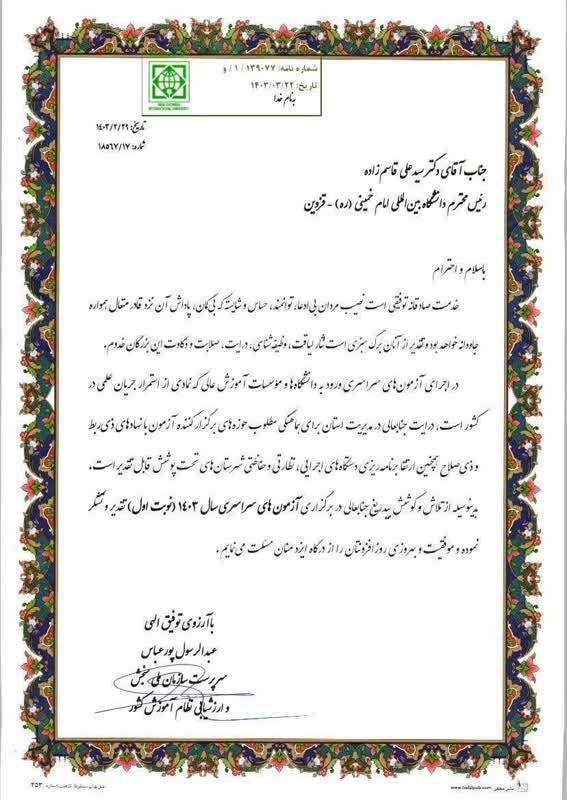 شماره نامه: ۱۳۹۰۷۷ / ۱ / و
تاریخ: ۱۴۰۳/۰۳/۲۲
به نام خدا
IMAM KHOMEINI
INTERNATIONAL UNIVERSITY
تاریخ: ۱۴۰۳/۲/۲۹
شماره: ۱۸۵۶۷/۱۷
جناب آقای دکتر سید علی قاسم زاده
رئیس محترم دانشگاه بین‌المللی امام خمینی (ره) - قزوین
باسلام و احترام
خدمت صادقانه توفیقی است نصیب مردان بی‌ادعا، توانمند، حساس و شایسته که بی‌گمان، پاداش آن نزد قادر متعال همواره
جاودانه خواهد بود و تقدیر از آنان برگ سبزی است نثار لیاقت، وظیفه شناسی، درایت، صلابت و ذکاوت این بزرگان خدوم.
در اجرای آزمون‌های سراسری ورود به دانشگاه‌ها و مؤسسات آموزش عالی که نمادی از استمرار جریان علمی در
کشور است، درایت جنابعالی در مدیریت استان برای هماهنگی مطلوب حوزه‌های برگزارکننده آزمون با نهادهای ذی‌ربط
و ذی‌صلاح همچنین ارتقا برنامه‌ریزی دستگاه‌های اجرایی، نظارتی و حفاظتی شهرستان‌های تحت پوشش قابل تقدیر است.
بدینوسیله از تلاش و کوشش بیدریغ جنابعالی در برگزاری آزمون های سراسری سال ۱۴۰۳ (نوبت اول) تقدیر و تشکر
نموده و موفقیت و بهروزی روزافزونتان را از درگاه ایزد منان مسئلت می‌نمایم.
با آرزوی توفیق الهی
عبدالرسول پورعباس
سرپرست سازمان ملی سنجش
و ارزشیابی نظام آموزش کشور
www.hafizpub.com